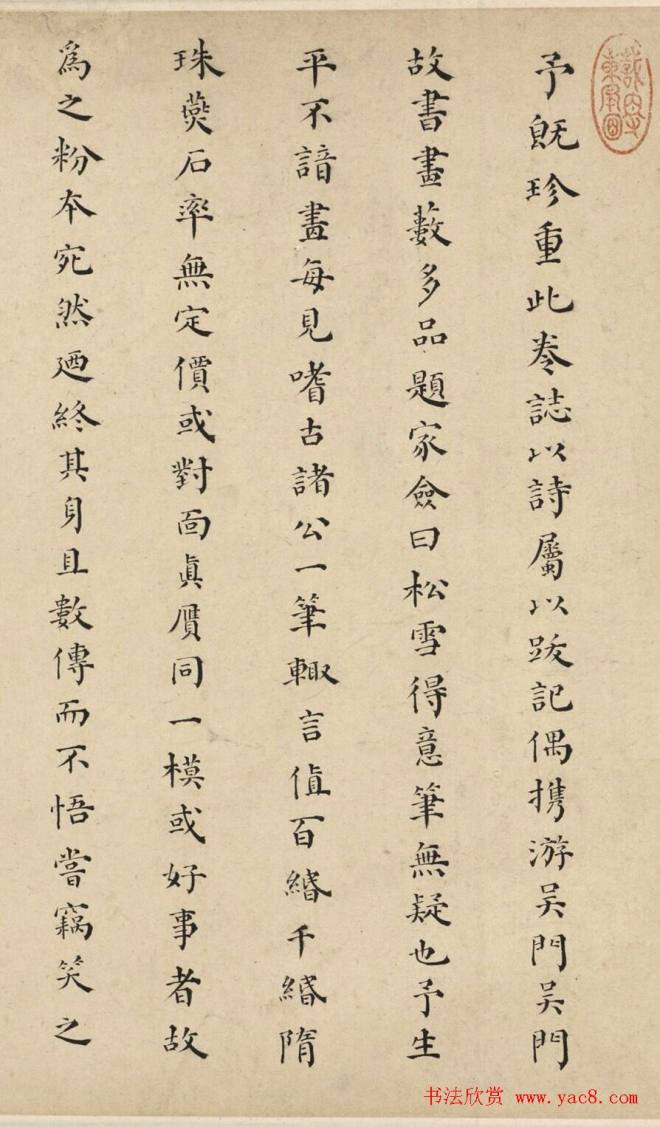 予既珍重此卷誌以詩屬以跋記偶携游吴門吴門
故書畫藪多品題家僉曰松雪得意筆無疑也予生
平不諳畫每見嗜古諸公一筆輙言值百緡千緡隋
珠燕石率無定價或對面真贋同一模或好事者故
爲之粉本宛然廼終其身且數傳而不悟嘗竊笑之
书法欣赏 www.yac8.com